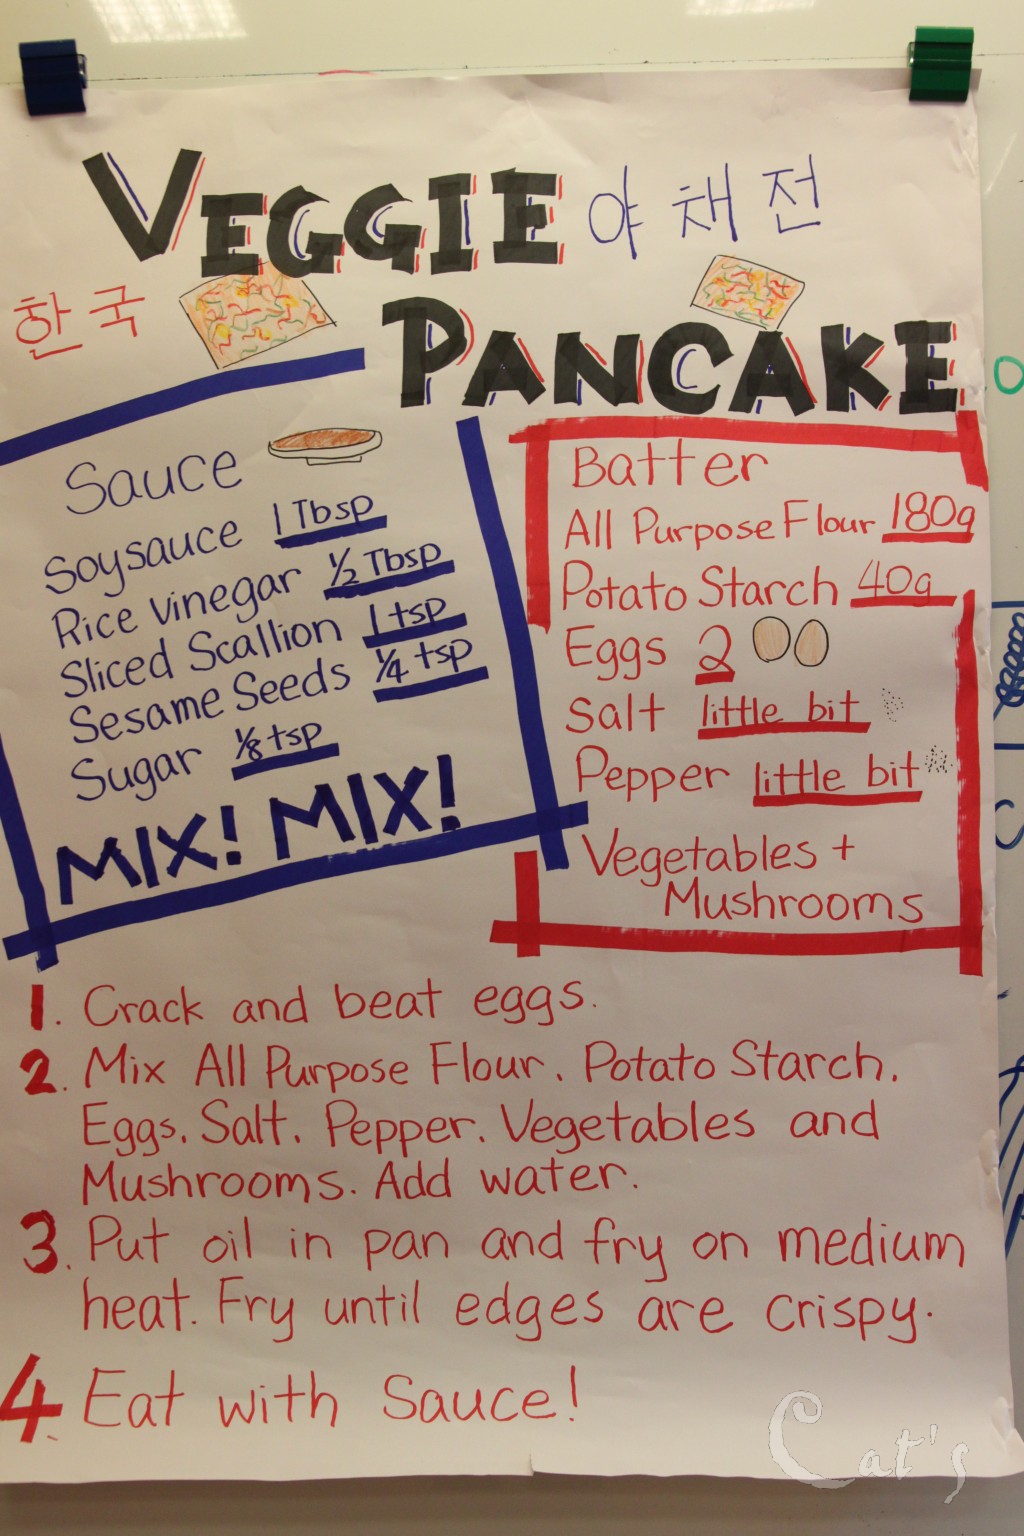 VEGGIE 야채전
한국
PANCAKE
Sauce
Soysauce 1 Tbsp
Rice vinegar 1/2 Tbsp
Sliced Scallion 1 tsp
Sesame Seeds 1/4 tsp
Sugar 1/8 tsp
MIX! MIX!
Batter
All Purpose Flour 180g
Potato Starch 40g
Eggs 2
Salt little bit
Pepper little bit
Vegetables +
Mushrooms
1. Crack and beat eggs.
2. Mix All Purpose Flour. Potato Starch.
Eggs. Salt. Pepper. Vegetables and
Mushrooms. Add water.
3. Put oil in pan and fry on medium
heat. Fry until edges are crispy.
4. Eat with Sauce!
Cat's